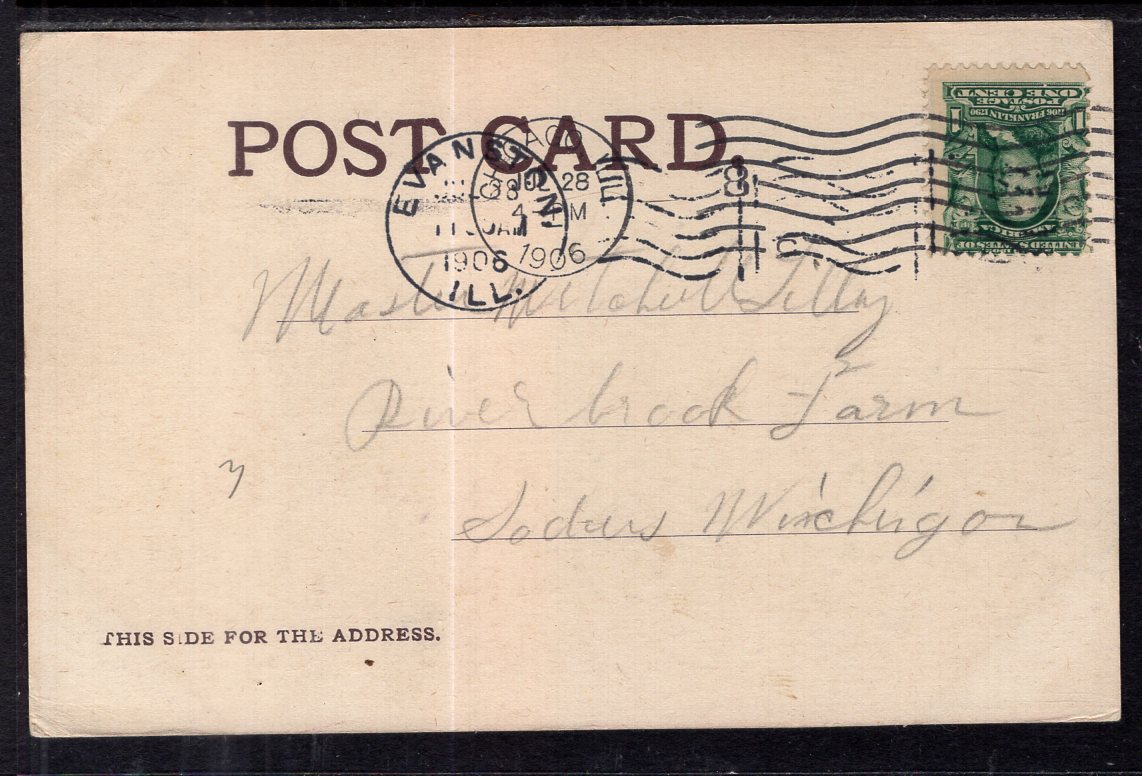 POST CARD
EVANSTON
JUL 28
11 30AM
1906
ILL.
CHICAGO, ILL.
JUL 28
4 PM
1906
ONE CENT
POSTAGE
1706 FRANKLIN 1790
1 1
UNITED STATES OF
AMERICA
Master Mitchell
River brook Farm
Sodus Michigan
THIS SIDE FOR THE ADDRESS.